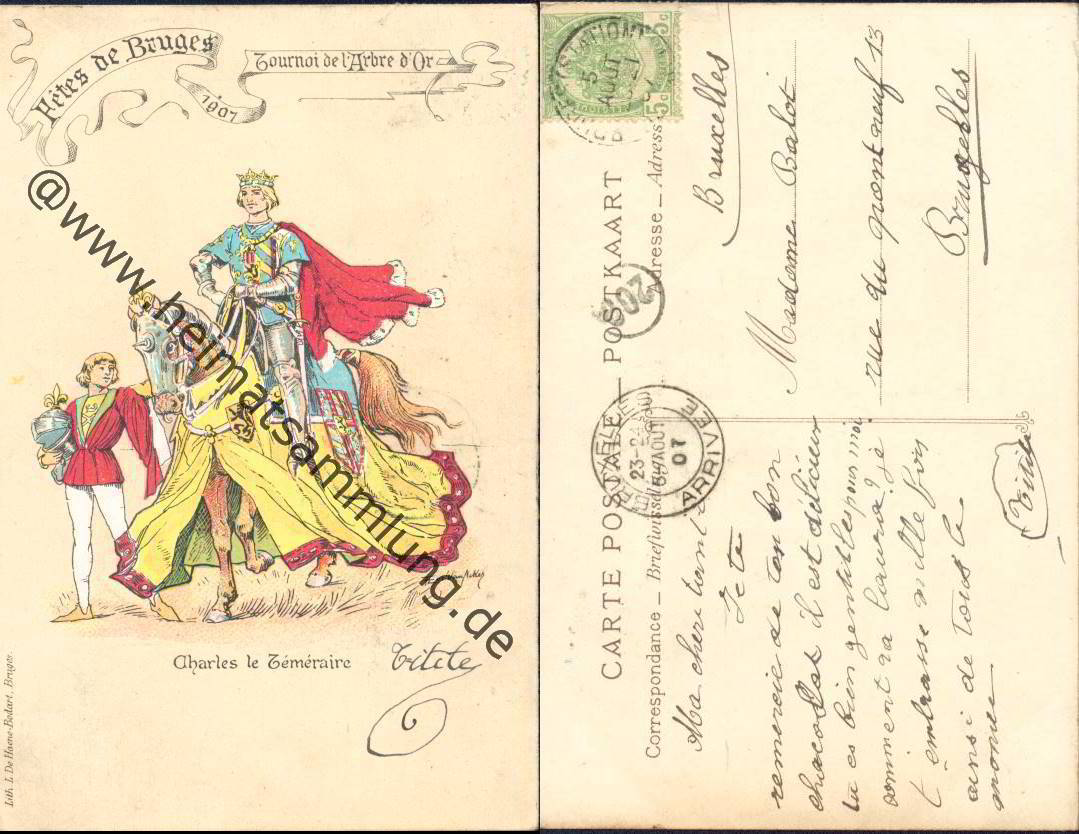 Fêtes de Bruges
1907
Tournoi de l'Arbre d'Or
@www.heimatsammlung.de
Charles le Téméraire
Titite
Lith. L. De Haene-Bodart, Bruges.
5
AOUT
5c 5c
CARTE POSTALE — POSTKAART
Correspondance — Adresse — Adress
BRUXELLES
23-24
5 AOUT
07
ARRIVÉE
Bruxelles
Madame Balot
rue du pont neuf 13
Bruxelles
Ma cher tante
Je te
remercie de ton bon
chocolat il est délicieux
tu es bien gentille pour moi
comment va
t'embrasse mille fois
ainsi de tous le
monde
Titite